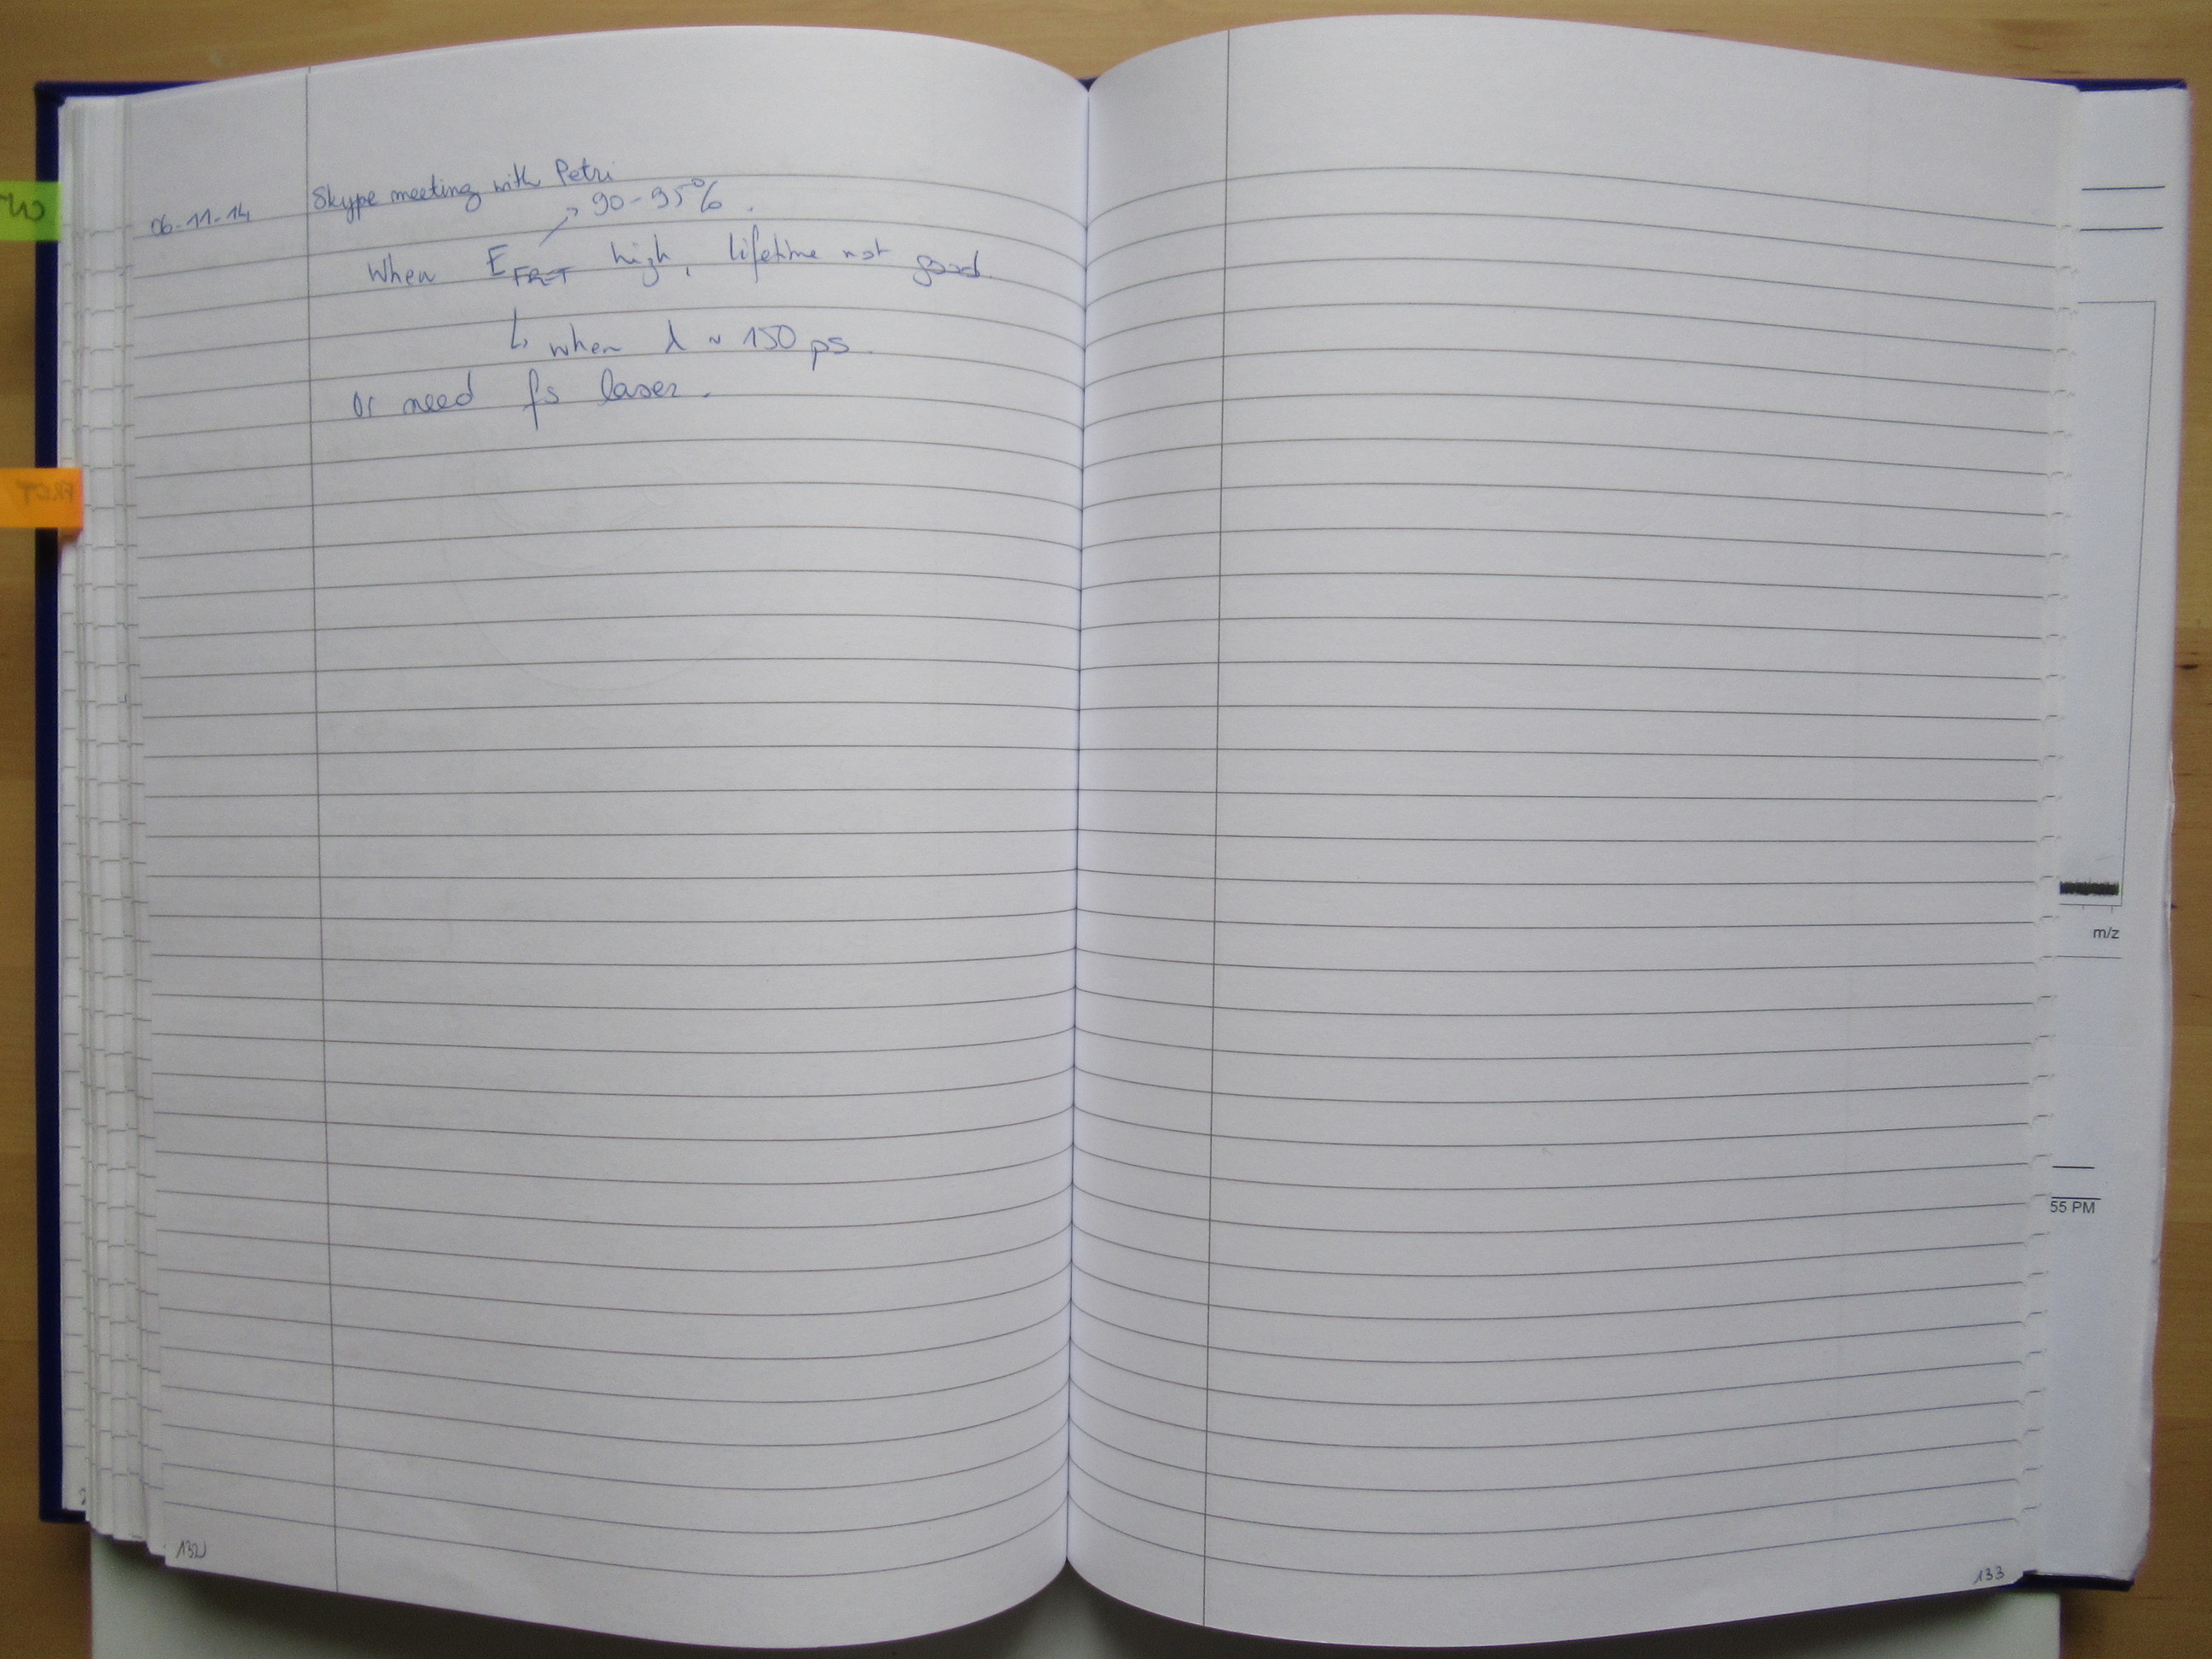 06-11-14 Skype meeting with Petri
→ 90-95%.
When E FRET high, lifetime not good.
↳ when λ ~ 150 ps.
Or need fs laser.
132
133
m/z
55 PM